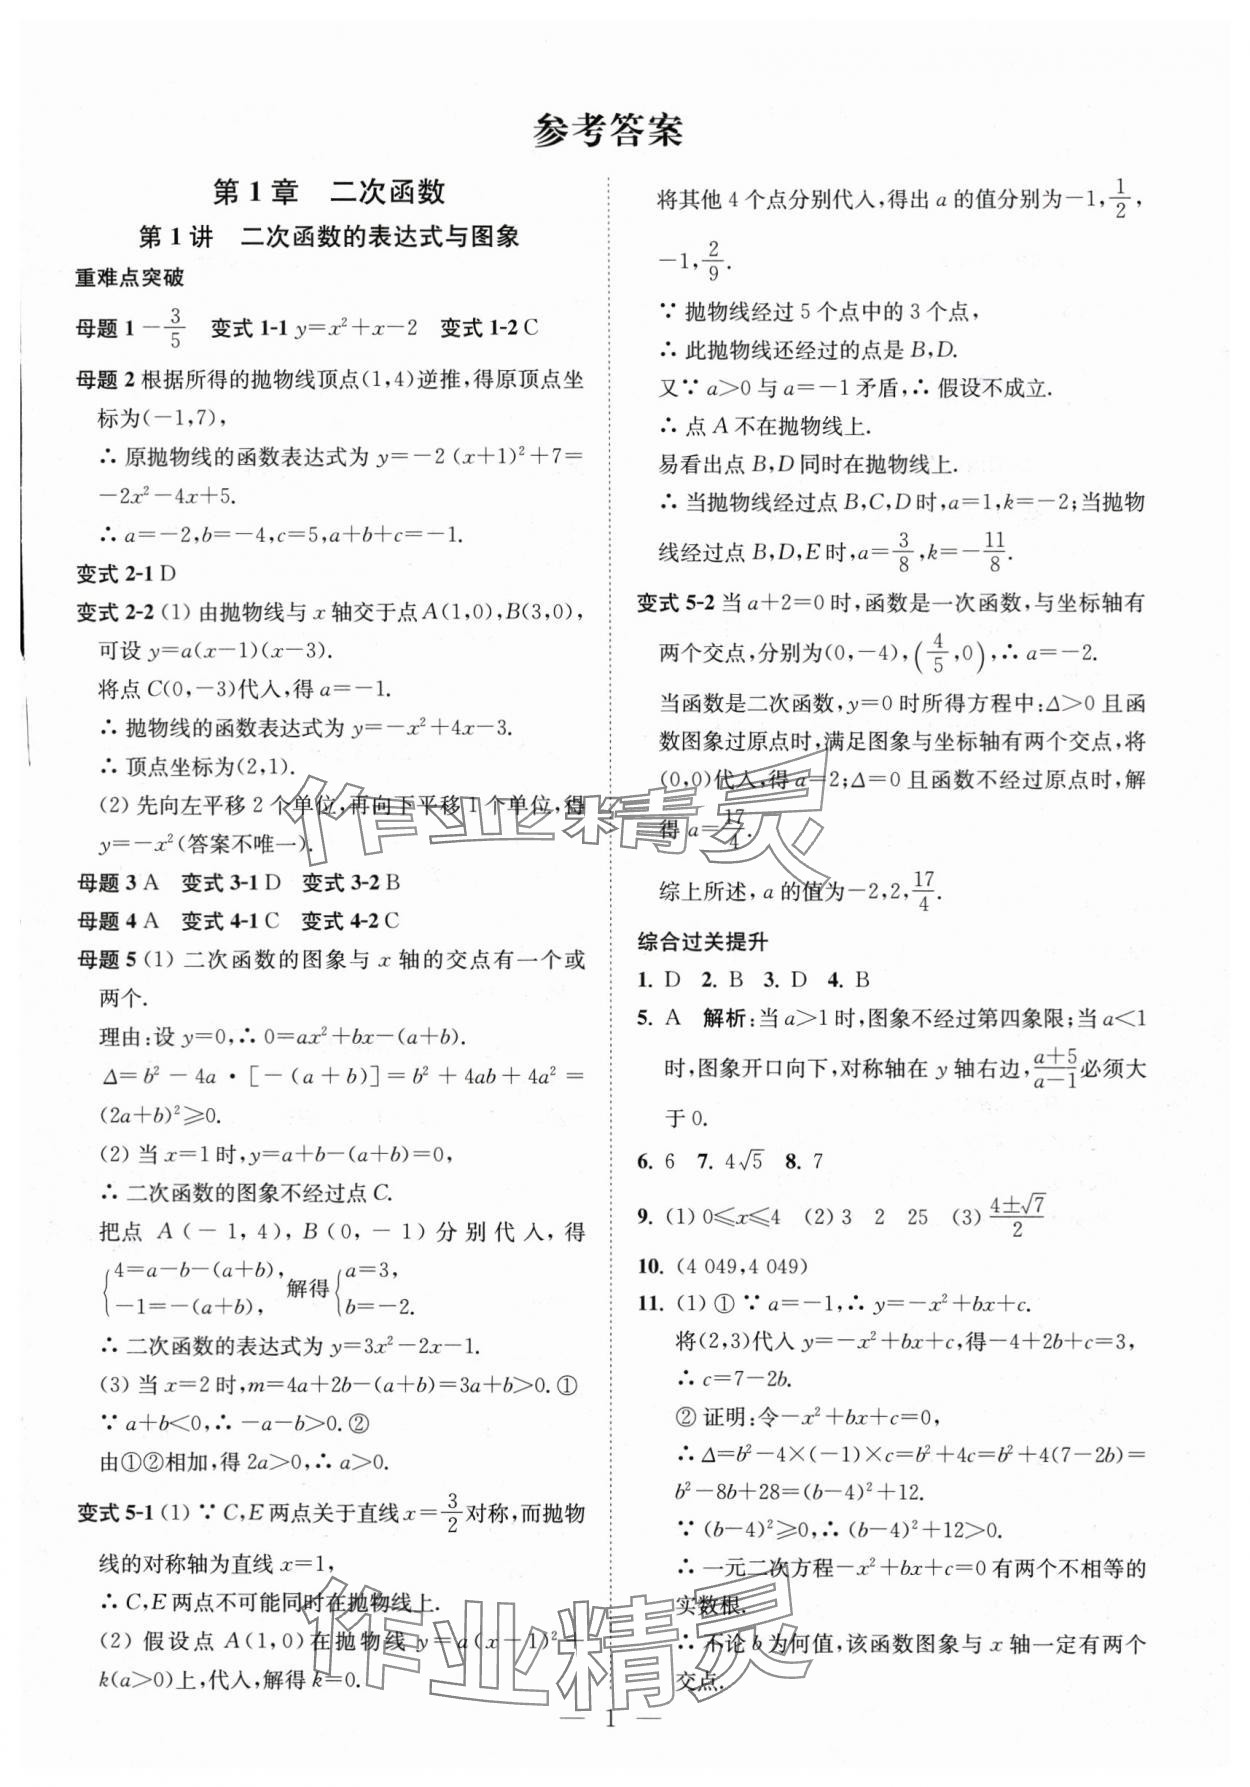 参考答案
第1章　二次函数
第1讲　二次函数的表达式与图象
重难点突破
母题1 －3/5　变式1-1 y＝x²＋x－2　变式1-2 C
母题2 根据所得的抛物线顶点(1,4)逆推,得原顶点坐
标为(－1,7),
∴ 原抛物线的函数表达式为 y＝－2(x＋1)²＋7＝
－2x²－4x＋5.
∴ a＝－2,b＝－4,c＝5,a＋b＋c＝－1.
变式2-1 D
变式2-2 (1) 由抛物线与 x 轴交于点A(1,0),B(3,0),
可设 y＝a(x－1)(x－3).
将点C(0,－3)代入,得a＝－1.
∴ 抛物线的函数表达式为 y＝－x²＋4x－3.
∴ 顶点坐标为(2,1).
(2) 先向左平移2个单位,再向下平移1个单位,得
y＝－x²(答案不唯一).
母题3 A　变式3-1 D　变式3-2 B
母题4 A　变式4-1 C　变式4-2 C
母题5 (1) 二次函数的图象与 x 轴的交点有一个或
两个.
理由:设 y＝0,∴ 0＝ax²＋bx－(a＋b).
Δ＝b²－4a·[－(a＋b)]＝b²＋4ab＋4a²＝
(2a＋b)²≥0.
(2) 当 x＝1时,y＝a＋b－(a＋b)＝0,
∴ 二次函数的图象不经过点C.
把点 A(－1,4),B(0,－1)分别代入,得
{4＝a－b－(a＋b), －1＝－(a＋b), 解得 {a＝3, b＝－2.
∴ 二次函数的表达式为 y＝3x²－2x－1.
(3) 当 x＝2时,m＝4a＋2b－(a＋b)＝3a＋b＞0.①
∵ a＋b＜0,∴ －a－b＞0.②
由①②相加,得2a＞0,∴ a＞0.
变式5-1 (1) ∵ C,E两点关于直线x＝3/2对称,而抛物
线的对称轴为直线 x＝1,
∴ C,E两点不可能同时在抛物线上.
(2) 假设点A(1,0)在抛物线 y＝a(x－1)²＋
k(a＞0)上,代入,解得k＝0.
将其他4个点分别代入,得出a的值分别为－1,1/2,
－1,2/9.
∵ 抛物线经过5个点中的3个点,
∴ 此抛物线还经过的点是B,D.
又∵ a＞0与a＝－1矛盾,∴ 假设不成立.
∴ 点A不在抛物线上.
易看出点B,D同时在抛物线上.
∴ 当抛物线经过点B,C,D时,a＝1,k＝－2;当抛物
线经过点B,D,E时,a＝3/8,k＝－11/8.
变式5-2 当a＋2＝0时,函数是一次函数,与坐标轴有
两个交点,分别为(0,－4),(4/5,0),∴ a＝－2.
当函数是二次函数,y＝0时所得方程中:Δ＞0且函
数图象过原点时,满足图象与坐标轴有两个交点,将
(0,0)代入,得a＝2;Δ＝0且函数不经过原点时,解
得a＝17/4.
综上所述,a的值为－2,2,17/4.
综合过关提升
1. D　2. B　3. D　4. B
5. A　解析:当a＞1时,图象不经过第四象限;当a＜1
时,图象开口向下,对称轴在 y 轴右边,(a＋5)/(a－1)必须大
于0.
6. 6　7. 4√5　8. 7
9. (1) 0≤x≤4　(2) 3　2　25　(3) (4±√7)/2
10. (4 049,4 049)
11. (1) ① ∵ a＝－1,∴ y＝－x²＋bx＋c.
将(2,3)代入 y＝－x²＋bx＋c,得－4＋2b＋c＝3,
∴ c＝7－2b.
② 证明:令－x²＋bx＋c＝0,
∴ Δ＝b²－4×(－1)×c＝b²＋4c＝b²＋4(7－2b)＝
b²－8b＋28＝(b－4)²＋12.
∵ (b－4)²≥0,∴ (b－4)²＋12＞0.
∴ 一元二次方程－x²＋bx＋c＝0有两个不相等的
实数根.
∴ 不论b为何值,该函数图象与 x 轴一定有两个
交点.
作业精灵
作业精灵
— 1 —